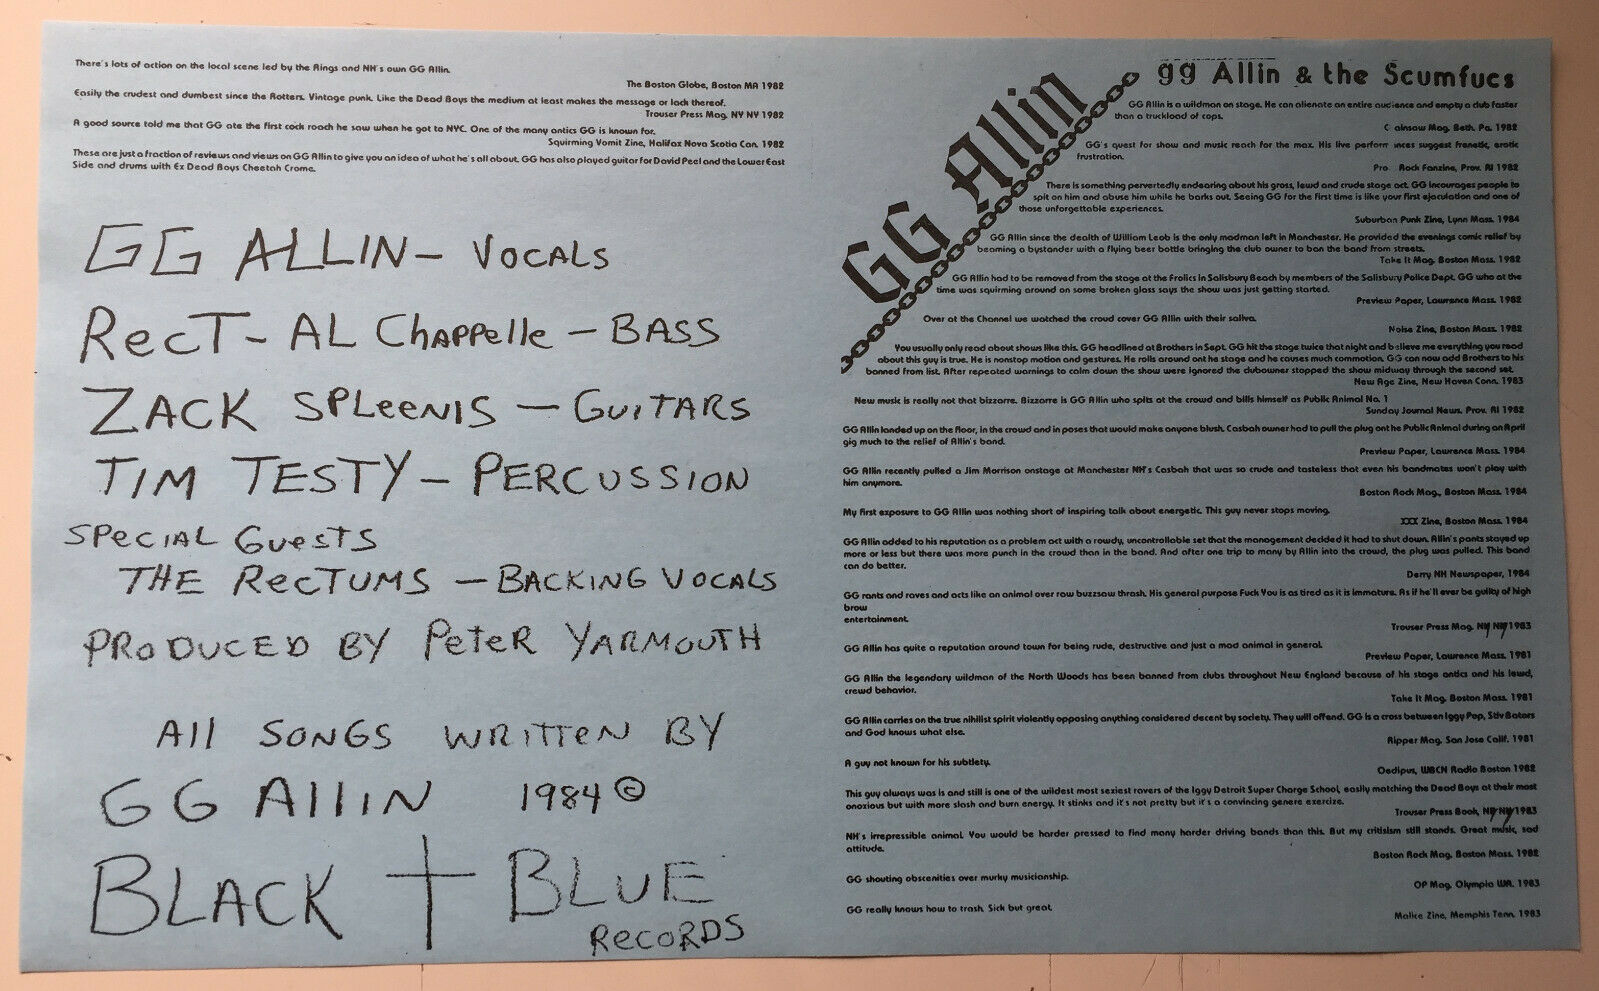 There's lots of action on the local scene led by the Rings and NH's own GG Allin.
The Boston Globe, Boston MA 1982
Easily the crudest and dumbest since the Rotters. Vintage punk. Like the Dead Boys the medium at least makes the message or lack thereof.
Trouser Press Mag. NY NY 1982
A good source told me that GG ate the first cock roach he saw when he got to NYC. One of the many antics GG is known for.
Squirming Vomit Zine, Halifax Nova Scotia Can. 1982
These are just a fraction of reviews and views on GG Allin to give you an idea of what he's all about. GG has also played guitar for David Peel and the Lower East
Side and drums with Ex Dead Boys Cheetah Crome.
GG ALLIN - VOCALS
RecT - AL Chappelle - BASS
ZACK SPLeeNIS - GUITARS
TIM TESTY - PERCUSSION
SPECIAL GUESTS
THE RECTUMS - BACKING VOCALS
PRODUCED BY PeTeR YARMOUTH
All SONGS WRITTeN BY
GG AllIN 1984 ©
BLACK + BLUE
RecoRDS
GG Allin
gg Allin & the Scumfucs
GG Allin is a wildman on stage. He can alienate an entire audience and empty a club faster
than a truckload of cops.
C ainsaw Mag. Beth. Pa. 1982
GG's quest for show and music reach for the max. His live perform nces suggest frenetic, erotic
frustration.
Pro. Rock Fanzine, Prov. RI 1982
There is something pervertedly endearing about his gross, lewd and crude stage act. GG incourages people to
spit on him and abuse him while he barks out. Seeing GG for the first time is like your first ejaculation and one of
those unforgettable experiences.
Suburban Punk Zine, Lynn Mass. 1984
GG Allin since the dealth of William Loeb is the only madman left in Manchester. He provided the evenings comic relief by
beaming a bystander with a flying beer bottle bringing the club owner to ban the band from streets.
Take It Mag. Boston Mass. 1982
GG Allin had to be removed from the stage at the Frolics in Salisbury Beach by members of the Salisbury Police Dept. GG who at the
time was squirming around on some broken glass says the show was just getting started.
Preview Paper, Lawrence Mass. 1982
Over at the Channel we watched the croud cover GG Allin with their saliva.
Noise Zine, Boston Mass. 1982
You usually only read about shows like this. GG headlined at Brothers in Sept. GG hit the stage twice that night and believe me everything you read
about this guy is true. He is nonstop motion and gestures. He rolls around ont he stage and he causes much commotion. GG can now add Brothers to his
banned from list. After repeated warnings to calm down the show were ignored the clubowner stopped the show midway through the second set.
New Age Zine, New Haven Conn. 1983
New music is really not that bizzarre. Bizzarre is GG Allin who spits at the crowd and bills himself as Public Animal No. 1
Sunday Journal News. Prov. RI 1982
GG Allin landed up on the floor, in the crowd and in poses that would make anyone blush. Casbah owner had to pull the plug ont he Public Animal during an April
gig much to the relief of Allin's band.
Preview Paper, Lawrence Mass. 1984
GG Allin recently pulled a Jim Morrison onstage at Manchester NH's Casbah that was so crude and tasteless that even his bandmates won't play with
him anymore.
Boston Rock Mag., Boston Mass. 1984
My first exposure to GG Allin was nothing short of inspiring talk about energetic. This guy never stops moving.
XXX Zine, Boston Mass. 1984
GG Allin added to his reputation as a problem act with a rowdy, uncontrollable set that the management decided it had to shut down. Allin's pants stayed up
more or less but there was more punch in the crowd than in the band. And after one trip to many by Allin into the crowd, the plug was pulled. This band
can do better.
Derry NH Newspaper, 1984
GG rants and raves and acts like an animal over raw buzzsaw thrash. His general purpose Fuck You is as tired as it is immature. As if he'll ever be guilty of high
brow
entertainment.
Trouser Press Mag. NY NY 1983
GG Allin has quite a reputation around town for being rude, destructive and just a mad animal in general.
Preview Paper, Lawrence Mass. 1981
GG Allin the legendary wildman of the North Woods has been banned from clubs throughout New England because of his stage antics and his lewd,
crewd behavior.
Take It Mag. Boston Mass. 1981
GG Allin carries on the true nihilist spirit violently opposing anything considered decent by society. They will offend. GG is a cross between Iggy Pop, Stiv Bators
and God knows what else.
Ripper Mag. San Jose Calif. 1981
A guy not known for his subtlety.
Oedipus, WBCN Radio Boston 1982
This guy always was is and still is one of the wildest most sexiest ravers of the Iggy Detroit Super Charge School, easily matching the Dead Boys at their most
onoxious but with more slash and burn energy. It stinks and it's not pretty but it's a convincing genere exercize.
Trouser Press Book, NY NY 1983
NH's irrepressible animal. You would be harder pressed to find many harder driving bands than this. But my critisism still stands. Great music, sad
attitude.
Boston Rock Mag. Boston Mass. 1982
GG shouting obscenities over murky musicianship.
OP Mag. Olympia WA. 1983
GG really knows how to trash. Sick but great.
Malice Zine, Memphis Tenn. 1983